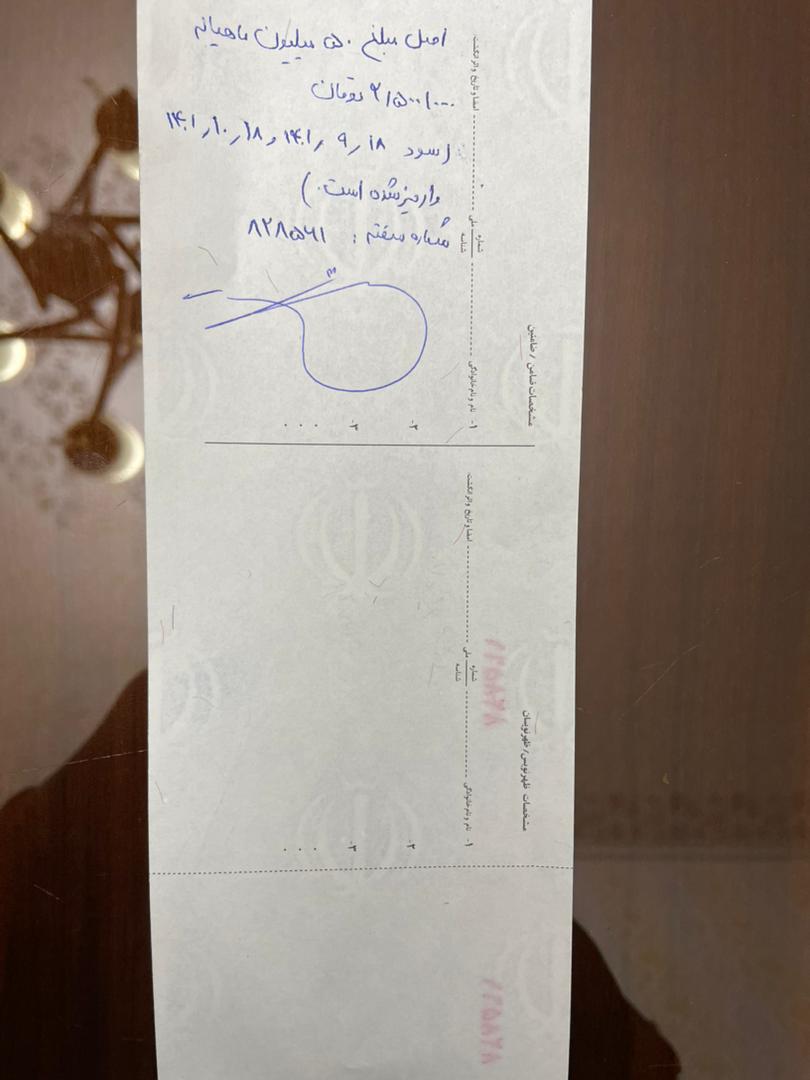 اصل مبلغ ۵۰ میلیون ماهیانه
۲/۵۰۰/۰۰۰ تومان
(سود ۱۸ر۹ر۱۴۰۱ و ۱۸ر۱۰ر۱۴۰۱
واریز شده است.)
شماره سفته: ۸۲۸۵۶۱
مشخصات ضامن / ضامنین
۱- نام و نام خانوادگی شماره ملی شناسه امضا و تاریخ و اثر انگشت
۲-
۳-
. . .
مشخصات ظهرنویس/ظهرنویسان
۱- نام و نام خانوادگی شماره ملی شناسه امضا و تاریخ و اثر انگشت
۲-
۳-
. . .